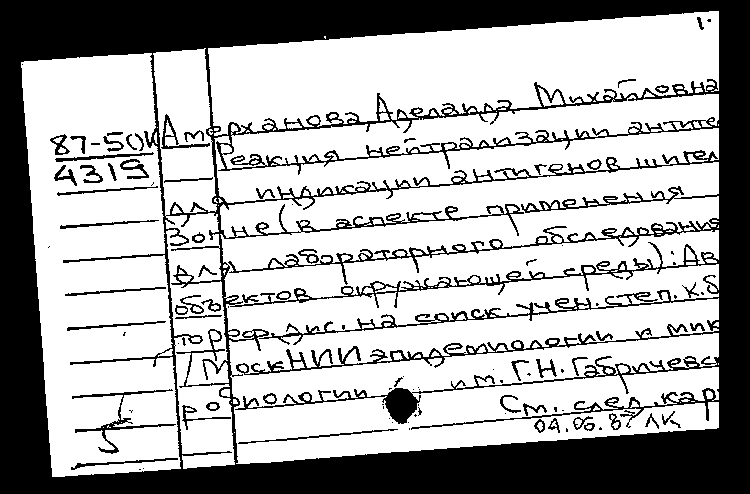 1.
87-50К Амерханова, Аделаида Михайловна
4319 Реакция нейтрализации антите
для индикации антигенов шигел
Зонне (в аспекте применения
для лабораторного обследования
объектов окружающей среды): Ав
тореф. дис. на соиск. учен. степ. к.б
/ Моск НИИ эпидемиологии и мик
робиологии им. Г.Н. Габричевск
См. след. кар
04.06.87 ЛК
5